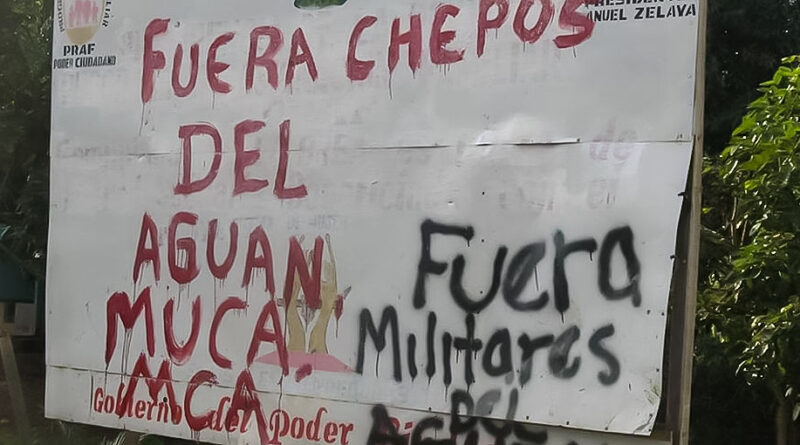 PRAF
PODER CIUDADANO
MANUEL ZELAYA
FUERA CHEPOS
DEL
AGUAN
MUCA.
MCA.
Fuera
Militares
DEL
Gobierno del Poder